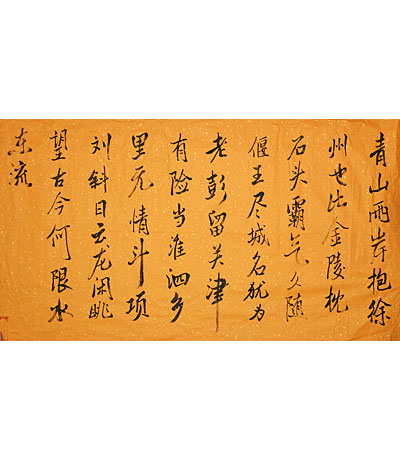 青山两岸抱徐
州也比金陵枕
石头霸气久随
偃王尽城名犹为
老彭留关津
有险当淮泗乡
里无情斗项
刘斜日云龙闲眺
望古今何限水
东流